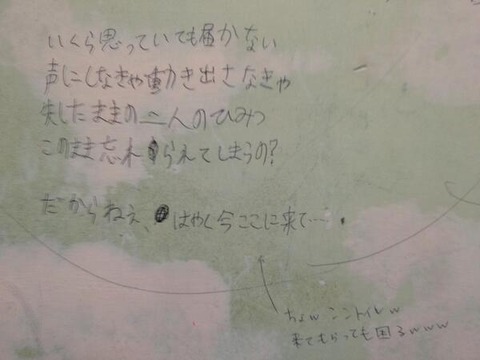 いくら思っていても届かない
声にしなきゃ動き出さなきゃ
失したままの二人のひみつ
このまま忘れられてしまうの?
だからねぇ、はやく今ここに来て…
ちょw ここトイレw
来てもらっても困るwww